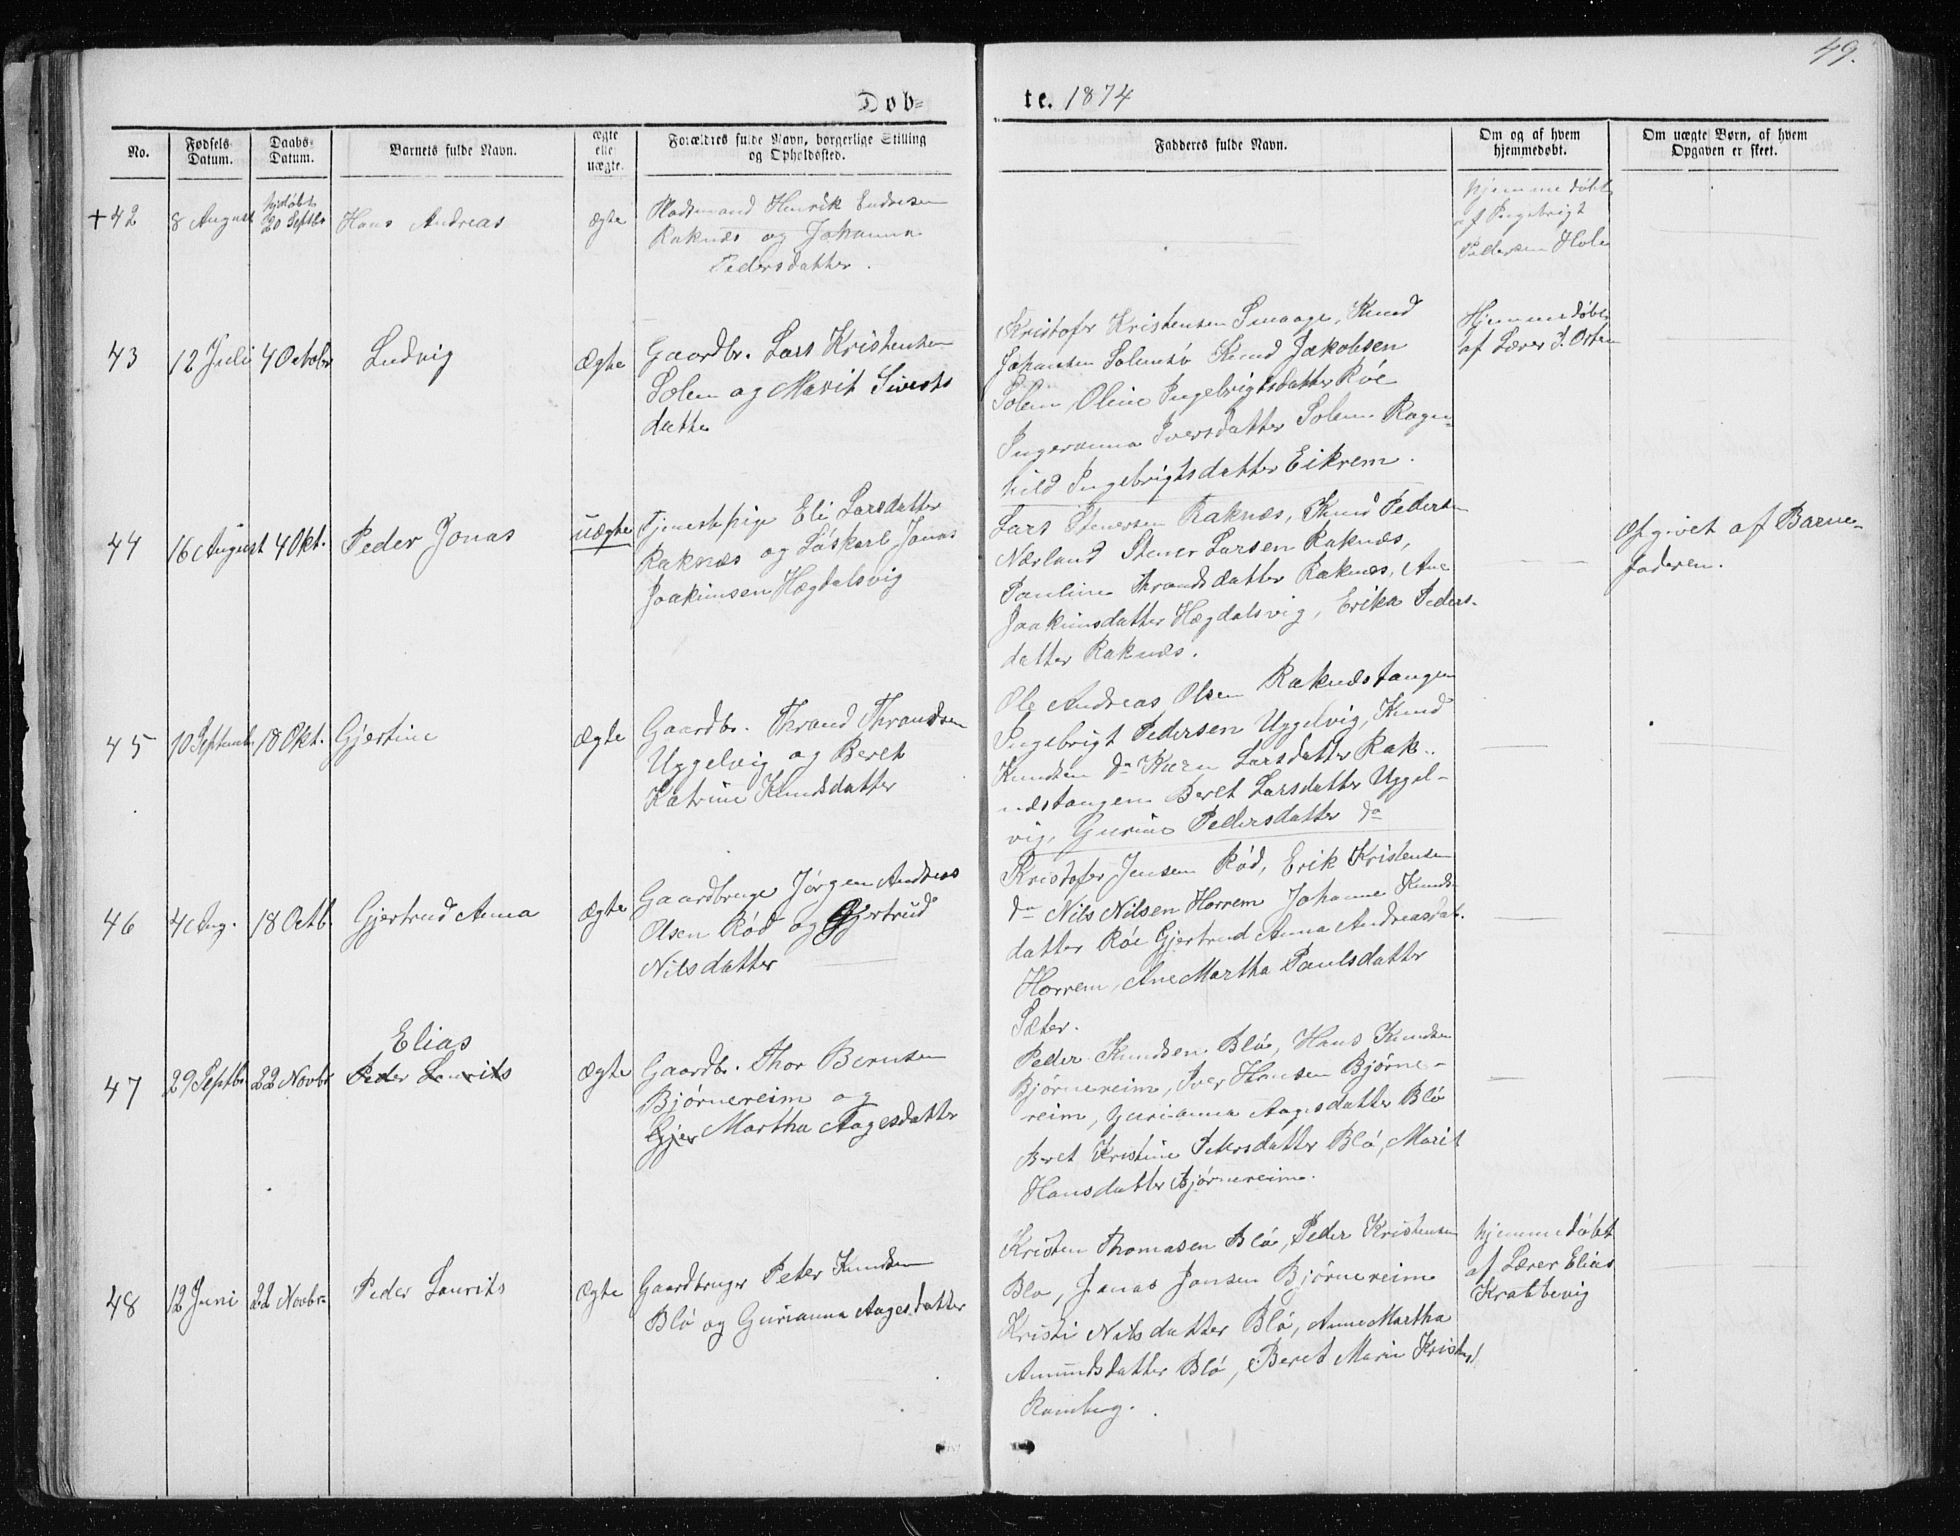 49.
Døb-
te. 1874
No.
Fødsels
Datum.
Daabs
Datum.
Barnets fulde Navn.
ægte
elle
uægte.
Forældres fulde Navn, borgerlige Stilling
og Opholdssted.
Fadderes fulde Navn.
Om og af hvem
hjemmedøbt.
Om uægte Børn, af hvem
Opgaven er skeet.
+42
8 August
hjdøbt
20 Septbr
Hans Andreas
ægte
Pladsmand Henrik Endresen
Raknæs og Johanna
Pedersdatter.
hjemmedøbt
af Ingebrigt
Pedersen Hole
43
12 Juli
4 Octobr
Ludvig
Ægte
Gaardbr. Lars Kristensen
Solem og Marit Siverts
datter
Kristofer Kristensen Smaage, Knud
Johansen Solemsø Knud Jakobsen
Solem Oline Ingebrigtsdatter Röe
Ingeranna Iversdatter Solem Ragn-
hild Ingebrigtsdatter Eikrem.
Hjemmedøbt
af Lærer J. Orten
44
16 August
4 Okt.
Peder Jonas
uægte
Tjenestepige Eli Larsdatter
Raknæs og Løskarl Jonas
Joakimsen Hægdalsvig
Lars Stenersen Raknæs, Knud Peders-
Nærland Stener Larsen Raknæs,
Pauline Thrandsdatter Raknæs, Ane
Joakimsdatter Hægdalsvig, Erika Peders-
datter Raknæs.
Opgivet af Barne-
faderen.
45
10 Septembr
18 Okt.
Gjertine
ægte
Gaardbr. Thrand Thrandsen
Uggelvig og Beret
Katrine Knudsdatter
Ole Andreas Olsen Raknæstangen
Ingebrigt Pedersen Uggelvig, Knud
Knudsen do Karn Larsdatter Rak-
næstangen Beret Larsdatter Uggel-
vig, Gurine Pedersdatter do
46
4 Aug.
18 Octb.
Gjertrud Anna
ægte
Gaardbruge Jörgen Andreas
Olsen Röd og Gjertrud
Nilsdatter
Kristofer Jensen Röd, Erik Kristensen
do Nils Nilsen Horrem Johanne Knuds-
datter Röe Gjertrud Anna Andreasdat.
Horrem, Ane Martha Paulsdatter
Sæter.
47
29 Septbr
22 Novbr
Elias
Peder Laurits
Ægte
Gaardbr. Thor Berntsen
Bjørnereim og
Gjer Martha Aagesdatter
Peder Knudsen Blö, Hans Knudsen
Bjørnereim, Iver Hansen Bjørne-
reim, Gurianna Aagesdatter Blö
Beret Kristine Petersdatter Blö, Marit
Hansdatter Bjørnereim.
48
12 Juni
22 Novbr.
Peder Laurits
Ægte
Gaardbruger Peter Knudsen
Blö og Gurianna Aagesdatter
Kristen Thomasen Blö, Peder Kristensen
Blö, Jonas Jonsen Bjørnereim
Kristi Nilsdatter Blö, Anne Martha
Amundsdatter Blö, Beret Marie Kristensd.
hjemmedøbt
af Lærer Elias
Krabbevig